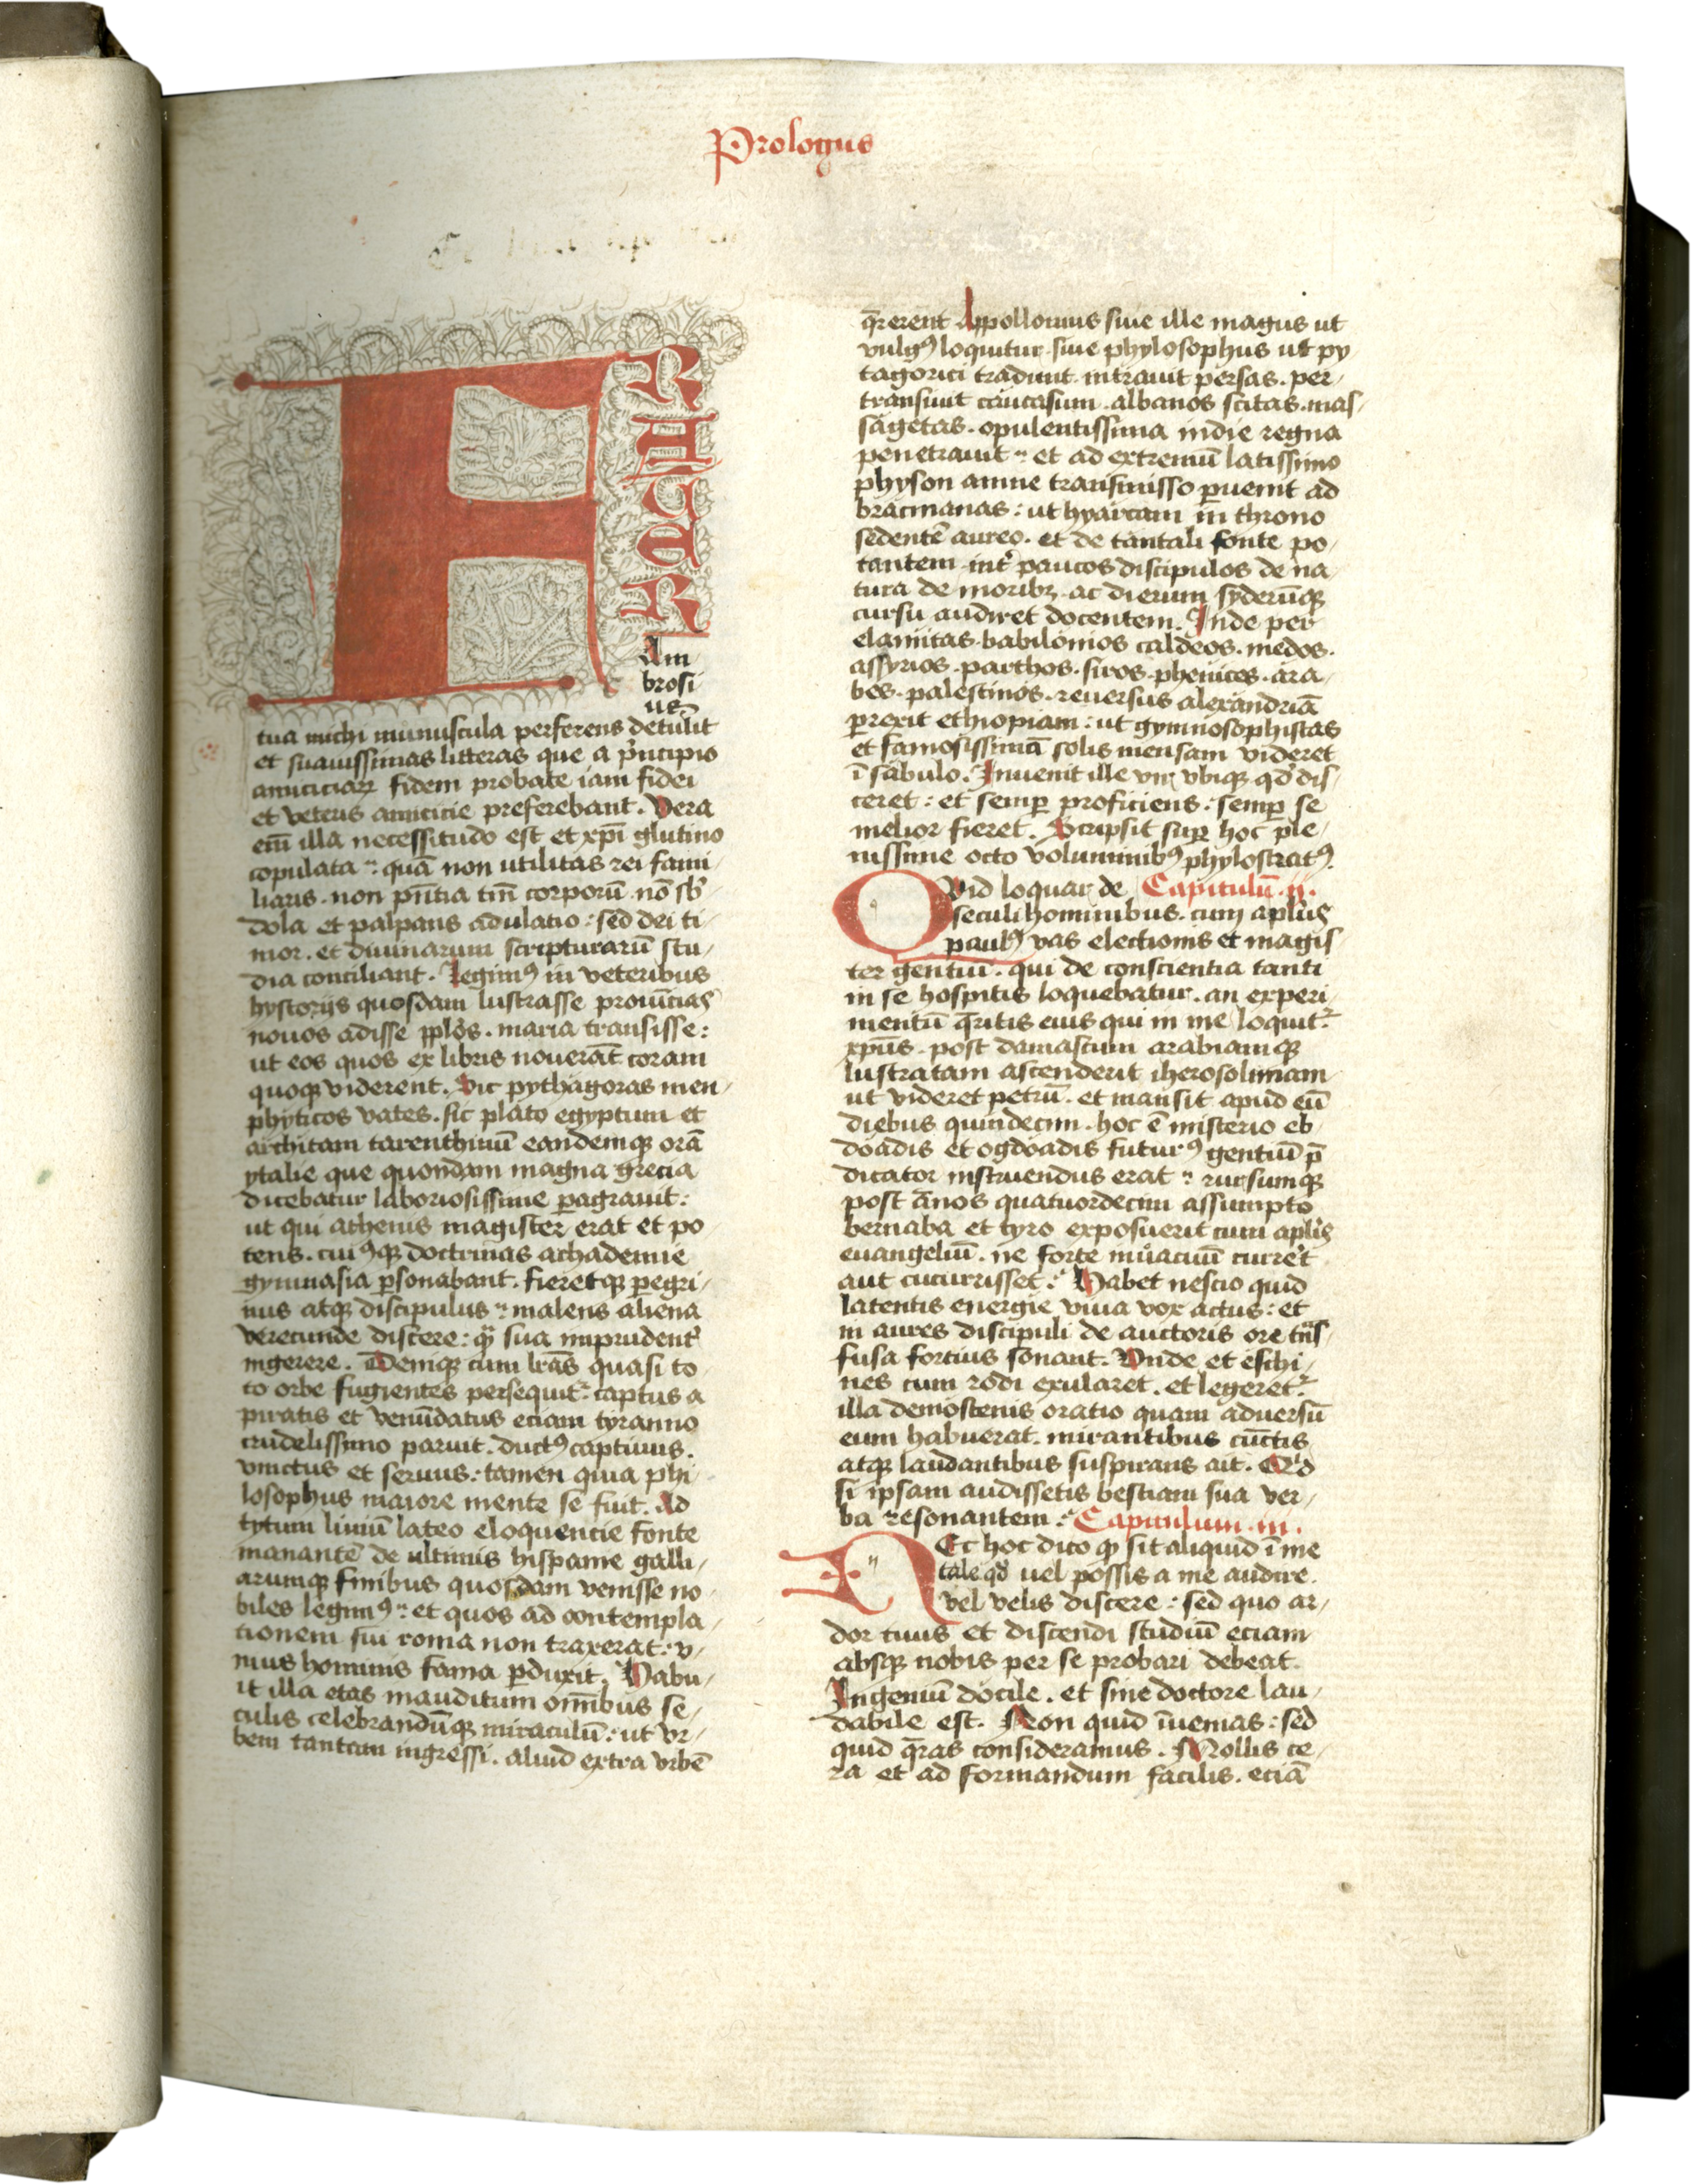 Prologus
FRATER
Am
brosi
us
tua michi munuscula perferens detulit
et suauissimas litteras que a p̄ncipio
amiciciaꝝ fidem probate iam fidei
et veteris amicicie preferebant. Vera
em̄ illa necessitudo est et xp̄i glutino
copulata : quā non utilitas rei fami
liaris . non pn̄tia tm̄ corporū . nō sb̓
dola et palpans adulatio : sed dei ti
mor . et diuinarum scripturarū stu
dia conciliant. Legimꝰ in veteribus
hystorijs quosdam lustrasse prouīcias
nouos adisse pplōs . maria transisse :
ut eos quos ex libris nouerāt coram
quoqꝫ viderent. Sic pythagoras men
phyticos vates . sic plato egyptum et
architam tarenthinū eandemqꝫ orā
ytalie que quondam magna grecia
dicebatur laboriosissime ꝑagrauit :
ut qui athenis magister erat et po
tens . cuiꝰqꝫ doctrinas achademie
gymnasia ꝑsonabant . fieretqꝫ ꝑegri
nus atqꝫ discipulus : malens aliena
verecunde discere : qͣꝫ sua inprudent̓
ingerere . Deniqꝫ cum lr̄as quasi to
to orbe fugientes persequit᷑ captus a
piratis et venūdatus eciam tyranno
crudelissimo paruit . ductꝰ captiuus .
vinctus et seruus : tamen quia phi
losophus maiore mente se fuit . Ad
tytum liuiū lateo eloquencie fonte
manantē de ultimis hispanie galli
arumqꝫ finibus quosdam venisse no
biles legimꝰ : et quos ad contempla
tionem sui roma non traxerat : v
nius hominis fama ꝑduxit . Habu
it illa etas inauditum omnibus se
culis celebrandūqꝫ miraculū : ut vr
bem tantam ingressi . aliud extra vrbē
q̄rerent Appollonius siue ille magus ut
vulgꝰ loquitur . siue phylosophus ut py
tagorici tradunt . intrauit persas . per
transiuit caucasum . albanos scitas . mas
sagetas . opulentissima indie regna
penetrauit : et ad extremū latissimo
physon amne transmisso ꝑuenit ad
bracmanas : ut hyarcam in throno
sedentē aureo . et de tantali fonte po
tantem int̓ paucos discipulos de na
tura de moribꝫ . ac dierum syderūqꝫ
cursu audiret docentem . Inde per
elamitas . babilonios caldeos . medos .
assyrios . parthos . siros . phenices . ara
bes . palestinos . reuersus alexandriā
ꝑrexit ethiopiam : ut gymnosophistas
et famosissimā solis mensam videret
ī sabulo . Inuenit ille vir vbiqꝫ qd̓ dis
ceret : et semꝑ proficiens : semꝑ se
melior fieret . Scripsit suꝑ hoc ple
nissime octo voluminibꝰ phylostratꝰ .
Quid loquar de Capitulū . ij .
seculi hominibus . cum apl̓us
paulꝰ vas electionis et magis
ter gentiū . qui de conscientia tanti
in se hospitis loquebatur . an experi
mentū q̄ritis eius qui in me loquit᷑
xp̄us . post damascum arabiamqꝫ
lustratam ascenderit iherosolimam
ut videret petrū . et mansit apud eū
diebus quindecim . hoc ē misterio eb
doadis et ogdoadis futurꝰ gentiū p̄
dicator instruendus erat : rursumqꝫ
post ānos quatuordecim assumpto
bernaba et tyto exposuerit cum apl̓is
euangeliū . ne forte inuacuū curret
aut cucurrisset . Habet nescio quid
latentis energie viua vox actus : et
in aures discipuli de auctoris ore tn̄s
fusa fortius sonant . Vnde et eschi
nes cum rodi exularet . et legeret᷑
illa demostenis oratio quam aduersū
eum habuerat . mirantibus cūctis
atqꝫ laudantibus suspirans ait . Qͥd
si ipsam audissetis bestiam sua ver
ba resonantem . Capitulum . iii .
Nec hoc dico qꝫ sit aliquid ī me
tale qd̓ uel possis a me audire .
vel velis discere : sed quo ar
dor tuus et discendi studiū eciam
absqꝫ nobis per se probari debeat .
Ingeniū docile . et sine doctore lau
dabile est . Non quid īuenias : sed
quid q̄ras consideramus . Mollis ce
ra et ad formandum facilis . eciā